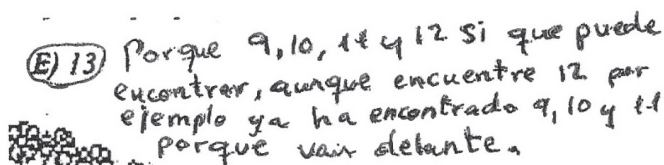 E) 13) Porque 9, 10, 11 y 12 si que puede
encontrar, aunque encuentre 12 por
ejemplo ya ha encontrado 9, 10 y 11
porque van delante.